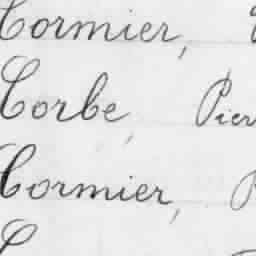 Cormier,
Corbe, Pier
Cormier,